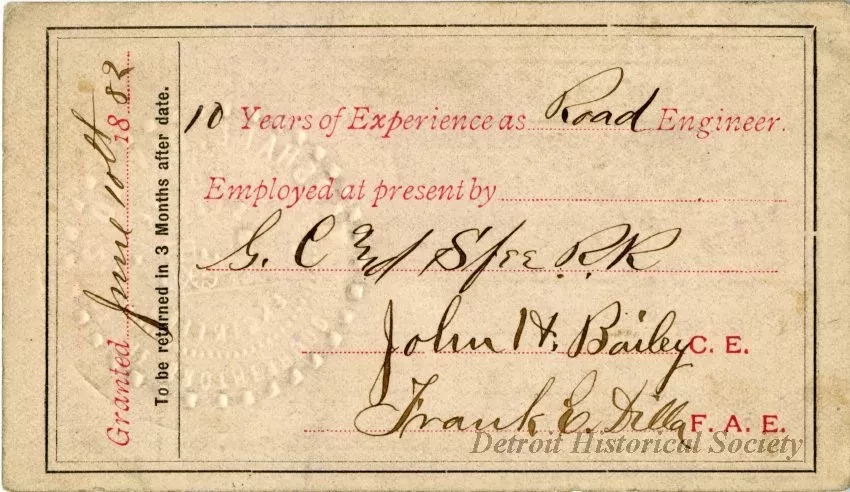 Granted June 10th 1882
To be returned in 3 Months after date.
10 Years of Experience as Road Engineer.
Employed at present by
G. C. & S. Fee R.R
John H. Bailey C. E.
Frank E. Dilla F. A. E.
Detroit Historical Society